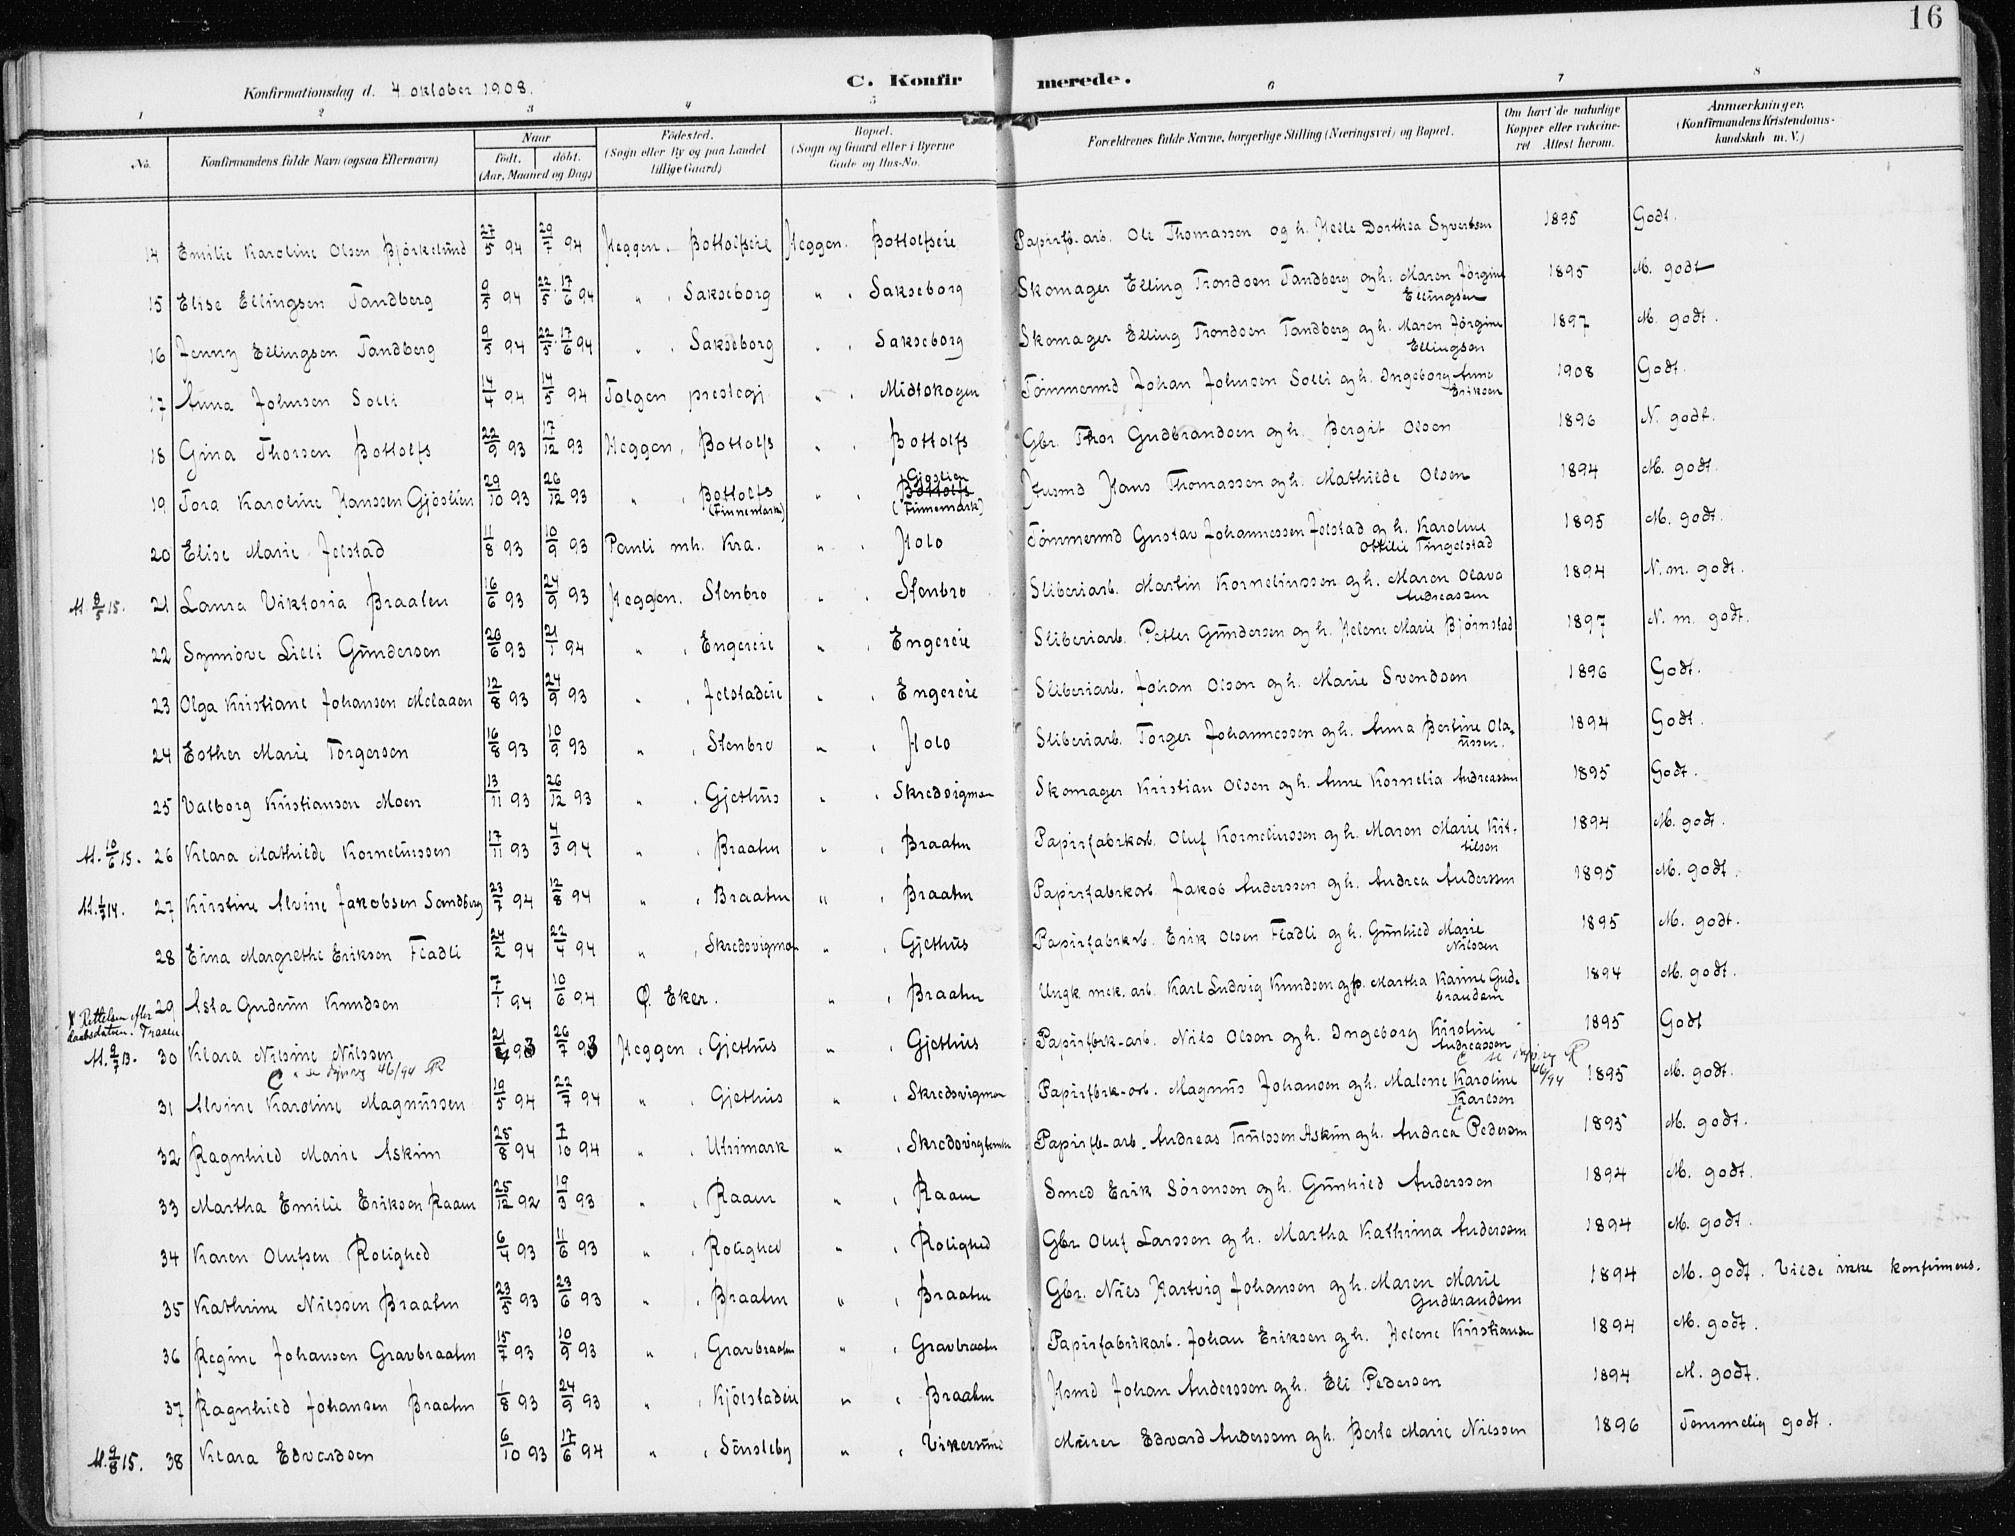 16
Konfirmationsdag d. 4 oktober 1908.
C. Konfirmerede.
1 2 3 4 5 6 7 8
No. Konfirmandens fulde Navn (ogsaa Efternavn) Naar født. døbt. (Aar, Maaned og Dag) Fødested. (Sogn eller By og paa Landet tillige Gaard) Bopæl. (Sogn og Gaard eller i Byerne Gade og Hus-No. Forældrenes fulde Navne, borgerlige Stilling (Næringsvei) og Bopæl. Om havt de naturlige Kopper eller vakcineret Attest herom. Anmærkninger. (Konfirmandens Kristendomskundskab m. V.)
14 Emilie Karoline Olsen Björkelund 27/5 94 29/7 94 Heggen. Bottolfseie Heggen. Bottolfseie Papirfb-arb. Ole Thomassen og h. Helle Dorthea Syvertsen 1895 Godt.
15 Elise Ellingsen Tandberg 9/5 94 22/5 . 17/6 94 " . Sakseborg " . Sakseborg Skomager Elling Trondsen Tandberg og h. Maren Jörgine Ellingsen 1895 M. godt
16 Jenny Ellingsen Tandberg 9/5 94 22/5 . 17/6 94 " . Sakseborg " . Sakseborg Skomager Elling Trondsen Tandberg og h. Maren Jörgine Ellingsen 1897 M. godt.
17 Anna Johnsen Solli 14/4 94 14/5 94 Tolgen prestegj. " . Midtskogen Tömmermd Johan Johnsen Solli og h. Ingeborg Anne Eriksen 1908 Godt.
18 Gina Thorsen Bottolfs 22/9 93 17/12 93 Heggen. Bottolfs " . Bottolfs Gbr. Thor Gudbrandsen og h. Bergit Olsen 1896 N. godt.
19 Tora Karoline Hanssen Gjöslien 29/10 93 26/12 93 " . Bottolfs (Finnemark) " . Gjöslien Bottolfs (Finnemark) Husmd Hans Thomassen og h. Mathilde Olsen 1894 M. godt.
20 Elise Marie Jelstad 11/8 93 10/9 93 Pauli mh. Kra. " . Holo Tömmermd Gustav Johannessen Jelstad og h. Karoline Ottilie Tingelstad 1895 M. godt.
M. 9/5 15. 21 Laura Viktoria Braaten 16/6 93 24/9 93 Heggen. Stenbro " . Stenbro Sliberiarb. Martin Korneliussen og h. Maren Olava Andreassen 1894 N. m. godt.
22 Synnöve Lilli Gundersen 26/6 93 21/1 94 " . Engereie " . Engereie Sliberiarb. Petter Gundersen og h. Helene Marie Bjørnstad 1897 N. m. godt.
23 Olga Kristiane Johansen Melaaen 12/8 93 24/9 93 " . Jelstadeie " . Engereie Sliberiarb. Johan Olsen og h. Marie Svendsen 1896 Godt.
24 Esther Marie Torgersen 16/8 93 10/9 93 " . Stenbro " . Holo Sliberiarb. Torger Johannessen og h. Anna Bertine Olaussen. 1894 Godt.
25 Valborg Kristiansen Moen 13/11 93 26/12 93 " . Gjethus " . Skredsvigmoen Skomager Kristian Olsen og h. Anne Kornelia Andreassen 1895 Godt.
M. 10/6 15. 26 Klara Mathilde Korneliussen 17/11 93 4/3 94 " . Braaten " . Braaten Papirfabrkarb. Oluf Korneliussen og h. Maren Marie Kittilsen 1894 M. godt.
27 Kirstine Alvine Jakobsen Sandberg 23/7 94 12/8 94 " . Braaten " . Braaten Papirfabrkarb. Jakob Anderssen og h. Andrea Anderssen 1895 M. godt.
28 Erna Margrethe Eriksen Fladli 24/2 94 22/4 94 " . Skredsvigmoen " . Gjethus Papirfabrkarb. Erik Olsen Fladli og h. Gunhild Marie Nilssen 1895 M. godt.
29 Asta Gudrun Knudsen 7/1 94 10/6 94 Ø. Eker. " . Braaten Ungk. mek. arb. Karl Ludvig Knudsen og p. Martha Karine Gudbrandsen 1894 M. godt.
X Rettelsen efter daabsdatoen. Traaen
M. 9/7 13. 30 Klara Nilsine Nilssen 21/4 93 26/7 93 Heggen. Gjethus " . Gjethus Papirfbrk-arb. Nils Olsen og h. Ingeborg Kirstine Andreassen 1895 Godt
46/94
31 Alvine Karoline Magnussen 10/5 94 22/7 94 " . Gjethus " . Skredsvigmoen Papirfbrk-arb. Magnus Johansen og h. Malene Karoline Karlsen 46/94 1895 M. godt.
32 Ragnhild Marie Askim 25/8 94 7/10 94 " . Utsimark " . Papirfb-arb. Andreas Trulssen Askim og h. Andrea Pedersen 1895 M. godt.
33 Martha Emilie Eriksen Raaen 25/12 92 19/3 93 " . Raaen " . Raaen Smed Erik Sörensen og h. Gunhild Anderssen 1894 M. godt.
34 Karen Olufsen Rolighed 6/4 93 11/6 93 " . Rolighed " . Rolighed Gbr. Oluf Larssen og h. Martha Kathrina Anderssen 1894 M. godt.
35 Kathrine Nilssen Braaten 23/5 93 23/6 93 " . Braaten " . Braaten Gbr. Nils Hartvig Johansen og h. Maren Marie Gudbrandsen 1894 M. godt. Vilde ikke konfirmeres.
36 Regine Johansen Gravbraaten 15/7 93 10/9 93 " . Gravbraaten " . Gravbraaten Papirfabrikarb. Johan Eriksen og h. Helene Kristiansen 1894 M. godt.
37 Ragnhild Johansen Braaten 1/8 93 24/9 93 " . Kjölstadeie " . Braaten Hsmd Johan Anderssen og h. Eli Pedersen 1894 M. godt.
M. 9/8 15. 38 Klara Edvardsen 6/10 93 17/6 94 " . Sönsteby " . Vikersund Murer Edvard Anderssen og h. Berte Marie Nilssen 1896 Temmelig godt.